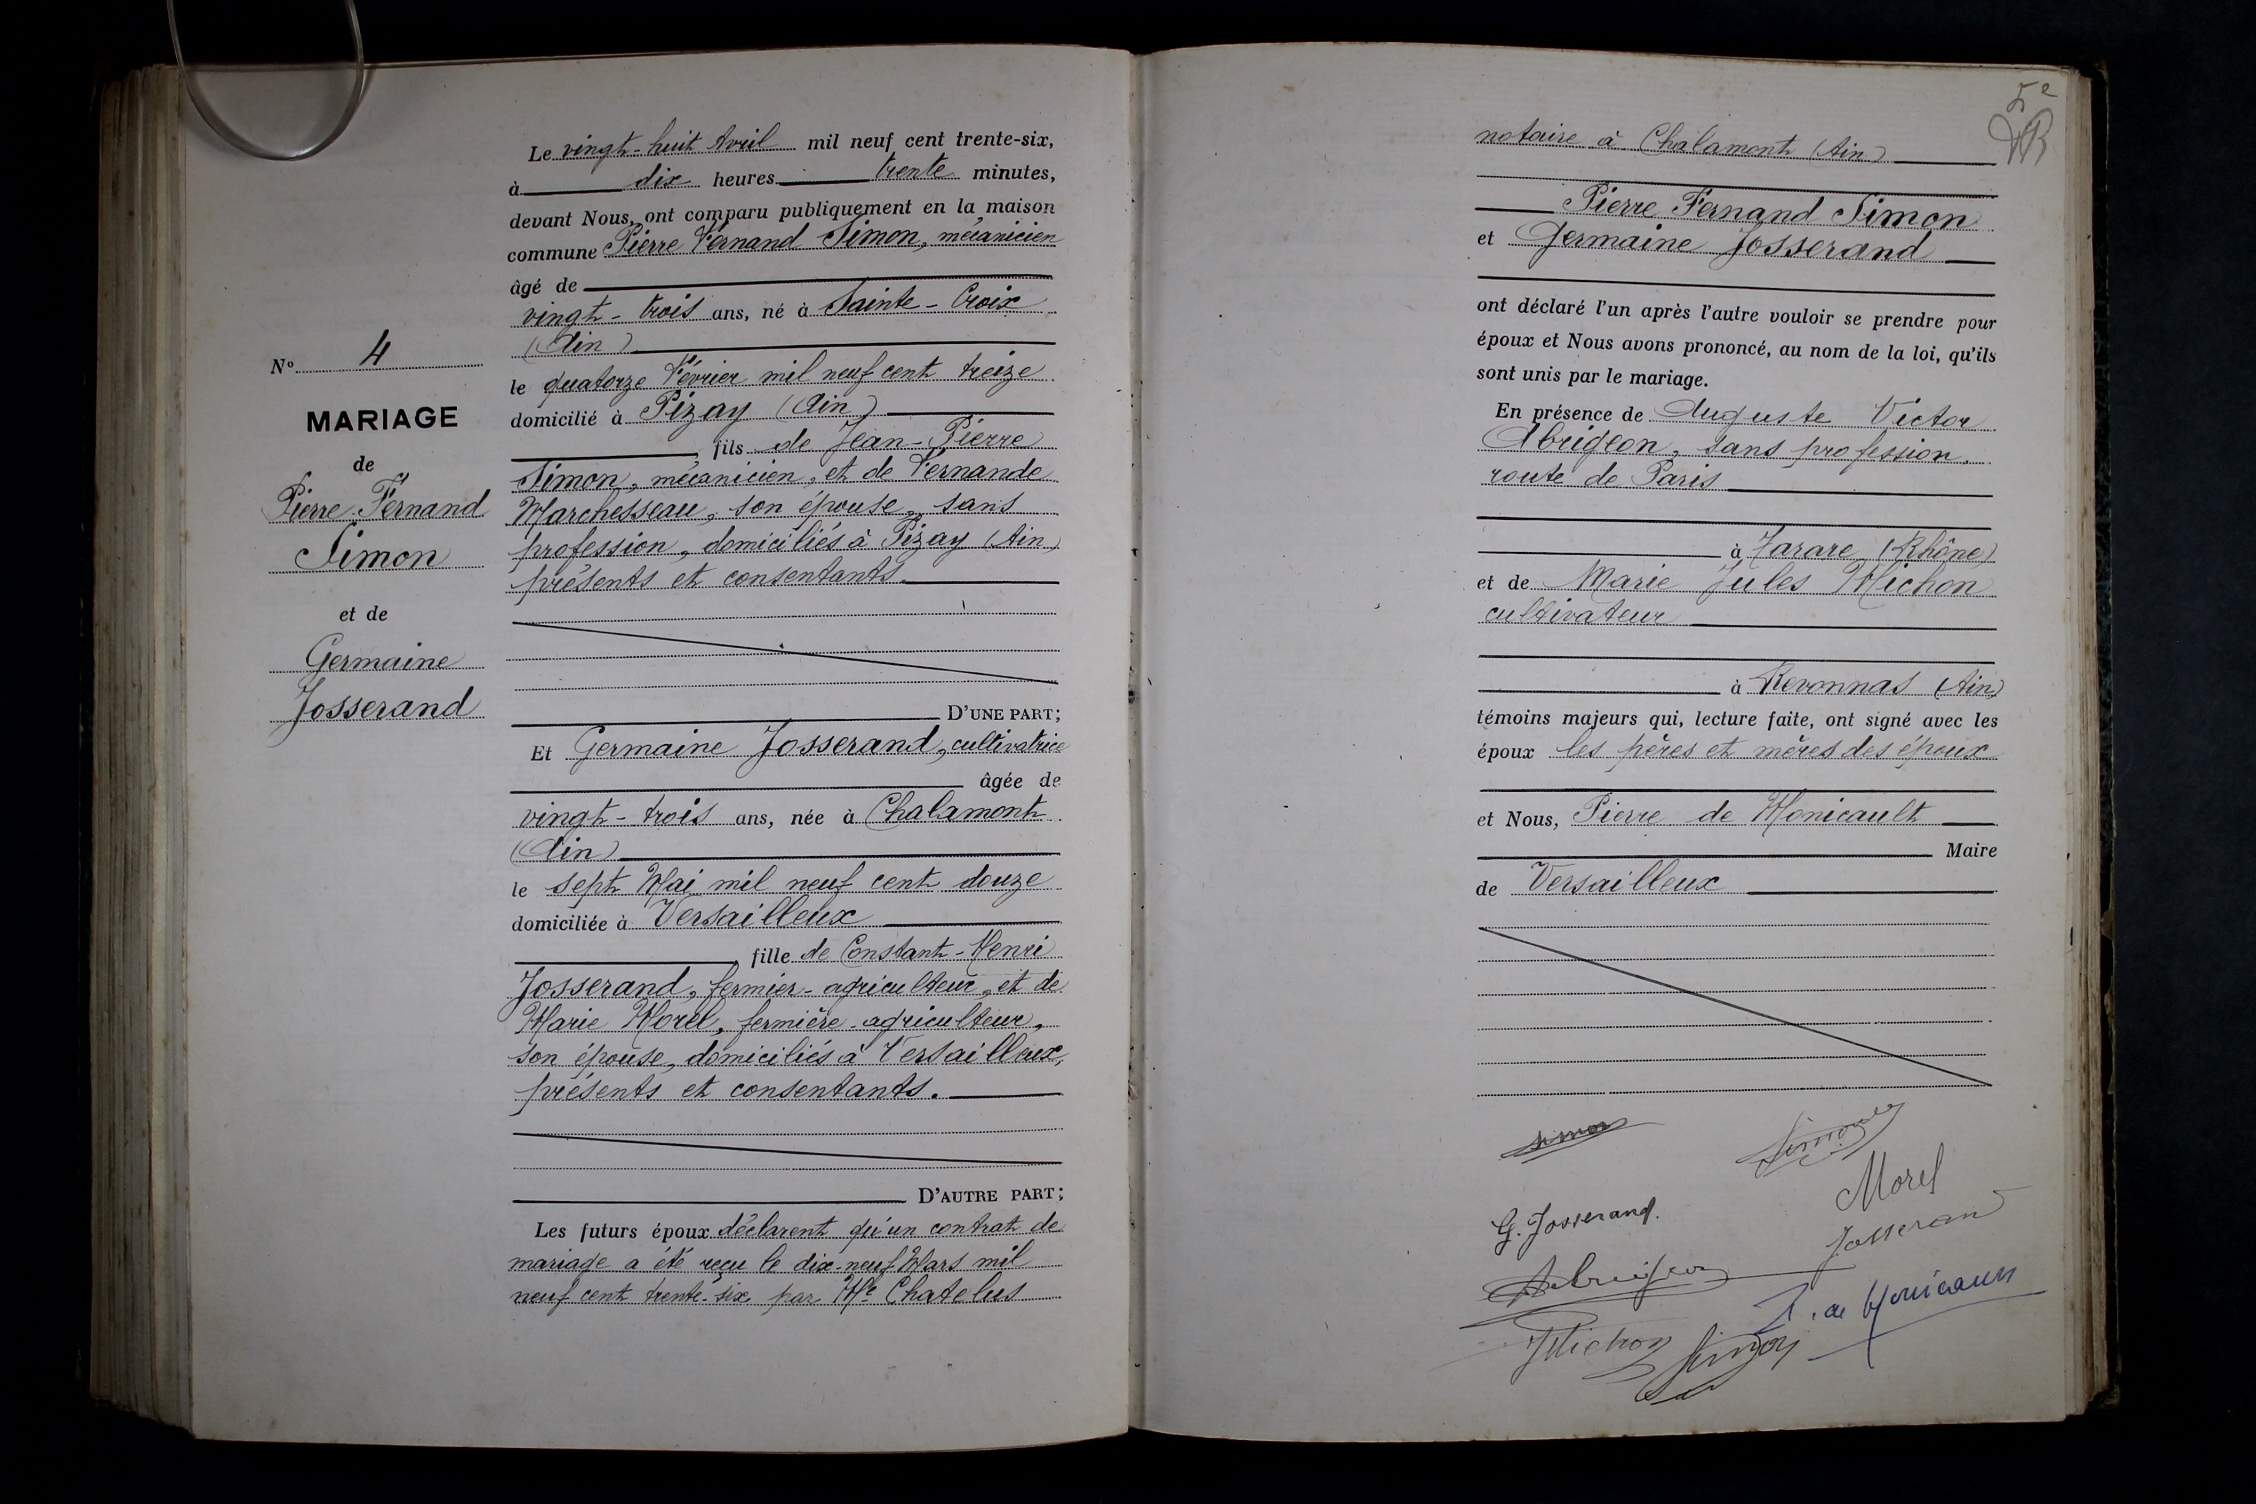 Le vingt-huit Avril mil neuf cent trente-six,
à dix heures trente minutes,
devant Nous, ont comparu publiquement en la maison
commune Pierre Fernand Simon, mécanicien
âgé de
vingt-trois ans, né à Sainte-Croix
(Ain)
le quatorze Février mil neuf cent treize
domicilié à Pizay (Ain)
fils de Jean-Pierre
Simon, mécanicien, et de Fernande
Marchesseau, son épouse, sans
profession, domiciliés à Pizay (Ain)
présents et consentants.
D'UNE PART;
Et Germaine Josserand, cultivatrice
âgée de
vingt-trois ans, née à Chalamont
(Ain)
le sept Mai mil neuf cent douze
domiciliée à Versailleux
fille de Constant-Henri
Josserand, fermier-agriculteur, et de
Marie Morel, fermière-agriculteur,
son épouse, domiciliés à Versailleux,
présents et consentants.
D'AUTRE PART;
Les futurs époux déclarent qu'un contrat de
mariage a été reçu le dix-neuf Mars mil
neuf cent trente-six par Me Chatelus
No 4
MARIAGE
de
Pierre Fernand
Simon
et de
Germaine
Josserand
notaire à Chalamont (Ain)
Pierre Fernand Simon
et Germaine Josserand
ont déclaré l'un après l'autre vouloir se prendre pour
époux et Nous avons prononcé, au nom de la loi, qu'ils
sont unis par le mariage.
En présence de Auguste Victor
Abrigeon, sans profession,
route de Paris
à Tarare (Rhône)
et de Marie Jules Michon
cultivateur
à Revonnas (Ain)
témoins majeurs qui, lecture faite, ont signé avec les
époux les pères et mères des époux
et Nous, Pierre de Monicault
Maire
de Versailleux
Simon
Simon
Morel
G. Josserand.
Josserand
Abrigeon
P. de Monicault
JMichon
Simon